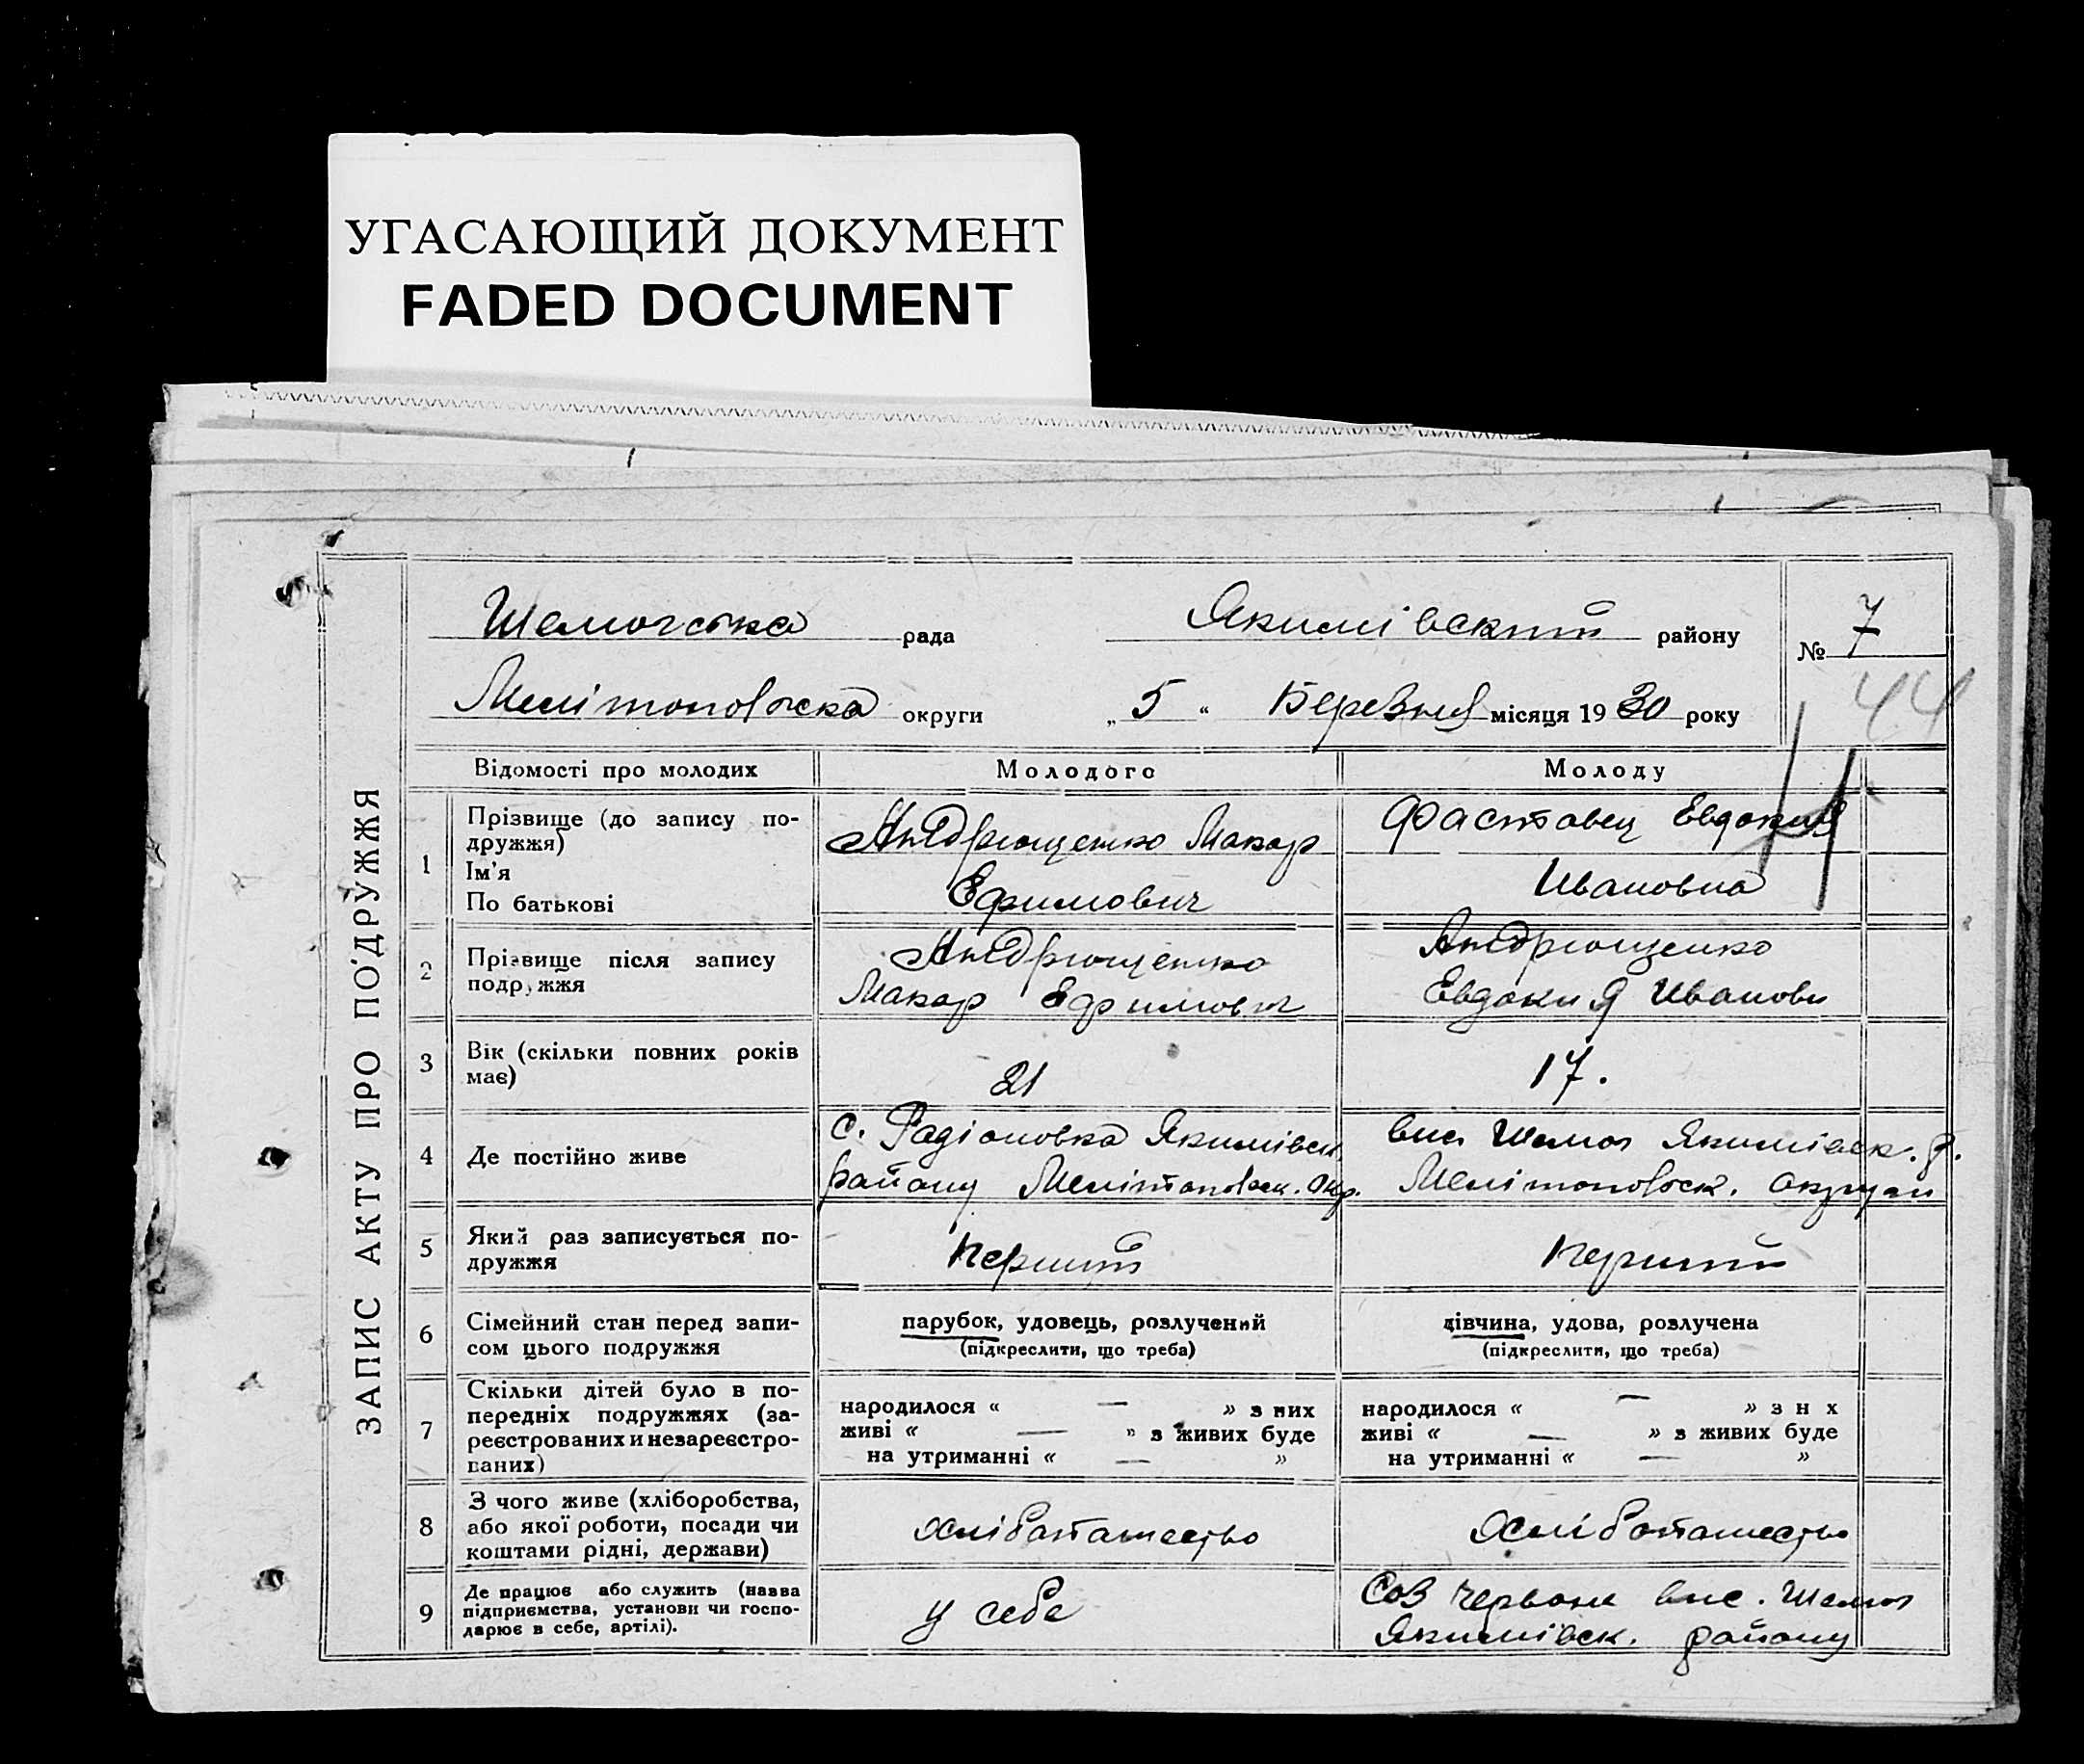 УГАСАЮЩИЙ ДОКУМЕНТ
FADED DOCUMENT
ЗАПИС АКТУ ПРО ПОДРУЖЖЯ
рада Якимівский району № 7
Мелітопольска округи „ 5 “ Березня місяця 19 30 року
44
Відомості про молодих Молодого Молоду
1 Прізвище (до запису по-
дружжя)
Ім'я
По батькові
Андрющенко Макар
Ефимович
Фаставец Евдокия
Ивановна
2 Прізвище після запису
подружжя
Андрющенко
Макар Ефимович
Андрющенко
Евдокия Иванови
3 Вік (скільки повних років
має)
21
17.
4 Де постійно живе
с. Радіоновка Якимівск.
району Мелітопольск. Окр.
Якимівск. р.
Мелітопольск. округи
5 Який раз записується по-
дружжя
перший
перший
6 Сімейний стан перед запи-
сом цього подружжя
парубок, удовець, розлучений
(підкреслити, що треба)
дівчина, удова, розлучена
(підкреслити, що треба)
7 Скільки дітей було в по-
передніх подружжях (за-
реєстрованих и незареєстро-
ваних)
народилося « — » з них
живі « — » з живих буде
на утриманні « — »
народилося « — » з н х
живі « — » з живих буде
на утриманні « — »
8 З чого живе (хліборобства,
або якої роботи, посади чи
коштами рідні, держави)
9 Де працює або служить (назва
підприємства, установи чи госпо-
дарює в себе, артілі).
у себе
Якимівск. району